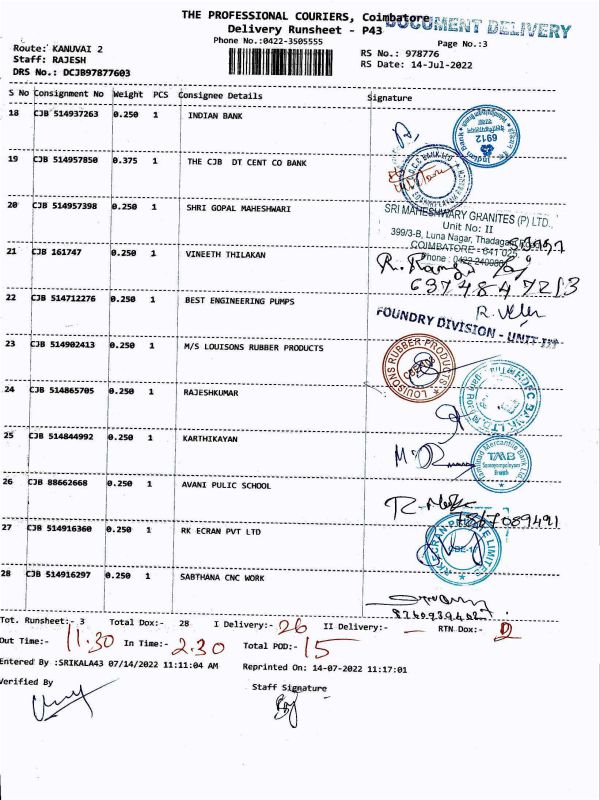 THE PROFESSIONAL COURIERS, Coimbatore
DOCUMENT DELIVERY
Delivery Runsheet - P43
Phone No.:0422-3505555
Page No.:3
Route: KANUVAI 2
RS No.: 978776
Staff: RAJESH
RS Date: 14-Jul-2022
DRS No.: DCJB97877603
S No Consignment No Weight PCS Consignee Details Signature
18 CJB 514937263 0.250 1 INDIAN BANK
6912
19 CJB 514957850 0.375 1 THE CJB DT CENT CO BANK
20 CJB 514957398 0.250 1 SHRI GOPAL MAHESHWARI
SRI MAHESHWARY GRANITES (P) LTD.,
Unit No: II
399/3-B, Luna Nagar, Thadagam
COIMBATORE - 641 025
21 CJB 161747 0.250 1 VINEETH THILAKAN
22 CJB 514712276 0.250 1 BEST ENGINEERING PUMPS
FOUNDRY DIVISION - UNIT III
23 CJB 514902413 0.250 1 M/S LOUISONS RUBBER PRODUCTS
LOUISONS RUBBER PRODUCTS
24 CJB 514865705 0.250 1 RAJESHKUMAR
HDFC BANK LTD
25 CJB 514844992 0.250 1 KARTHIKAYAN
Tamilnad Mercantile Bank Ltd
TMB
26 CJB 88662668 0.250 1 AVANI PULIC SCHOOL
27 CJB 514916360 0.250 1 RK ECRAN PVT LTD
RK ECRAN PRIVATE LIMITED
28 CJB 514916297 0.250 1 SABTHANA CNC WORK
Tot. Runsheet:- 3 Total Dox:- 28 I Delivery:- 26 II Delivery:- — RTN Dox:- 2
Out Time:- 11.30 In Time:- 2.30 Total POD:- 15
Entered By :SRIKALA43 07/14/2022 11:11:04 AM Reprinted On: 14-07-2022 11:17:01
Verified By Staff Signature